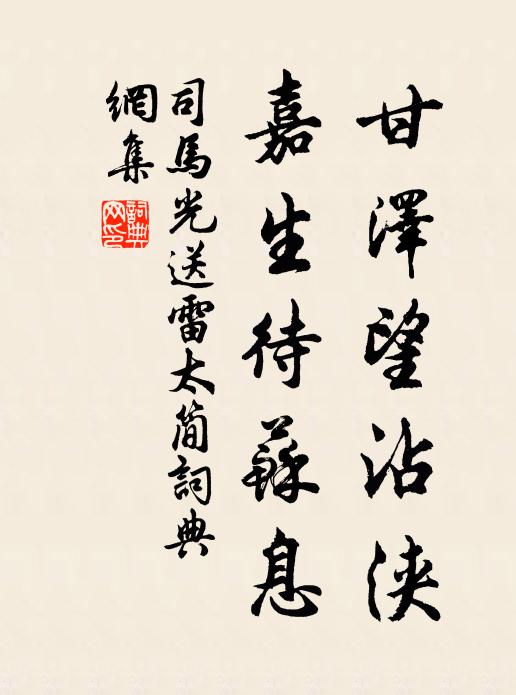 甘澤望沾浹
嘉生待蘇息
司馬光送雷太簡詞典
網集
詞典網印